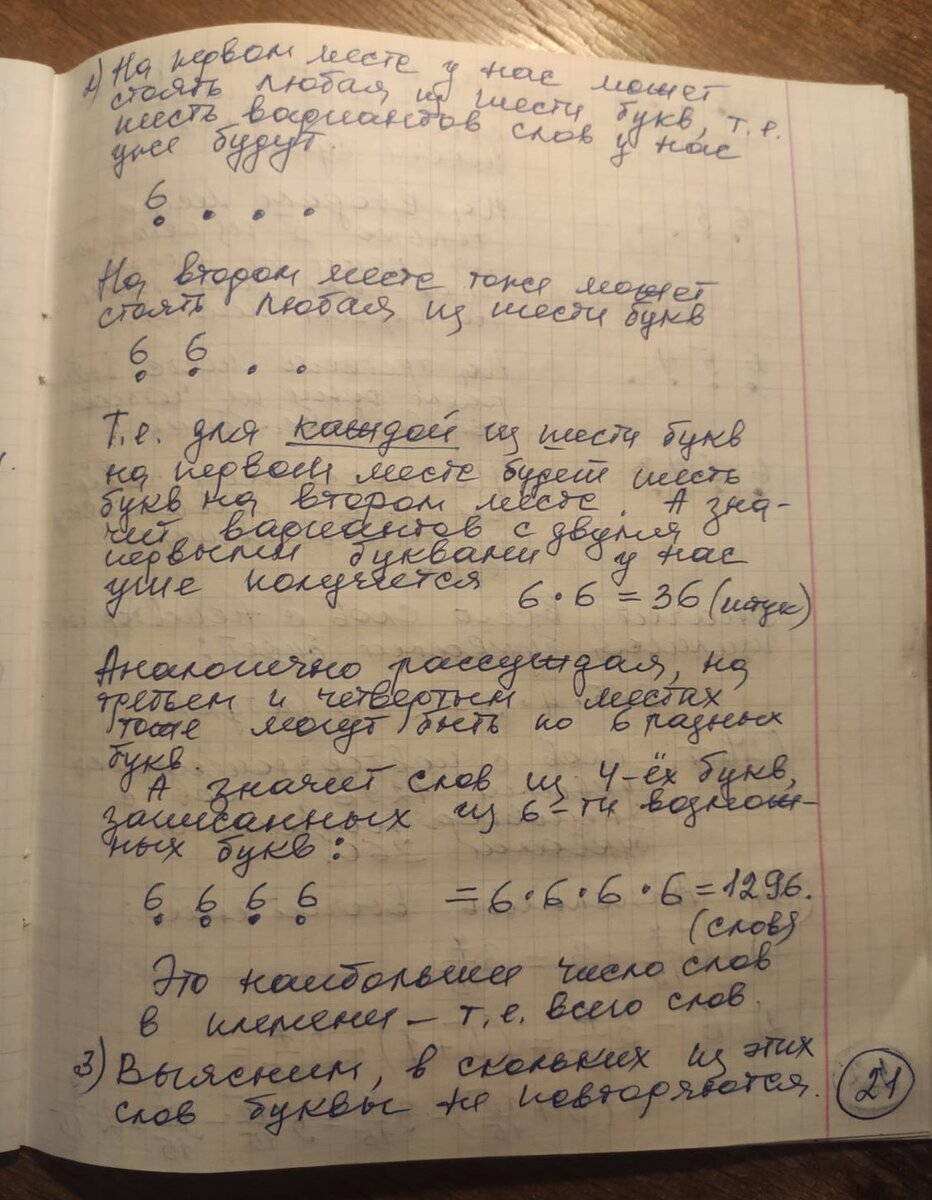 2) На первом месте у нас может
стоять любая из шести букв, т.е.
шесть вариантов слов у нас
уже будут.
6
На втором месте тоже может
стоять любая из шести букв
6 6
Т.е. для каждой из шести букв
на первом месте будет шесть
букв на втором месте. А зна-
чит вариантов с двумя
первыми буквами у нас
уже получается 6 · 6 = 36 (штук)
Аналогично рассуждая, на
третьем и четвертым местах
тоже могут быть по 6 разных
букв.
А значит слов из 4-ёх букв,
записанных из 6-ти возмож-
ных букв:
6 6 6 6 = 6 · 6 · 6 · 6 = 1296.
(слов)
Это наибольшее число слов
в племени – т.е. всего слов.
3) Выясним, в скольких из этих
слов буквы не повторяются.
21